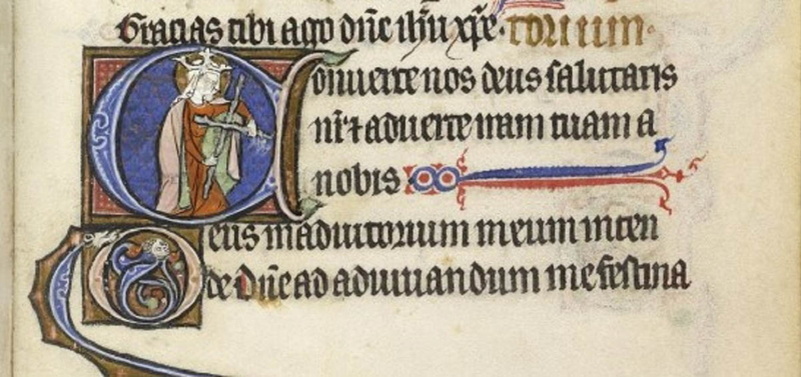 Gracias tibi ago dñe ihũ xp̃e. torium.
Conuerte nos deus salutaris
nr̃ ⁊ aduerte iram tuam a
nobis
Deus in adiutorium meum inten
de Dñe ad adiuuandum me festina